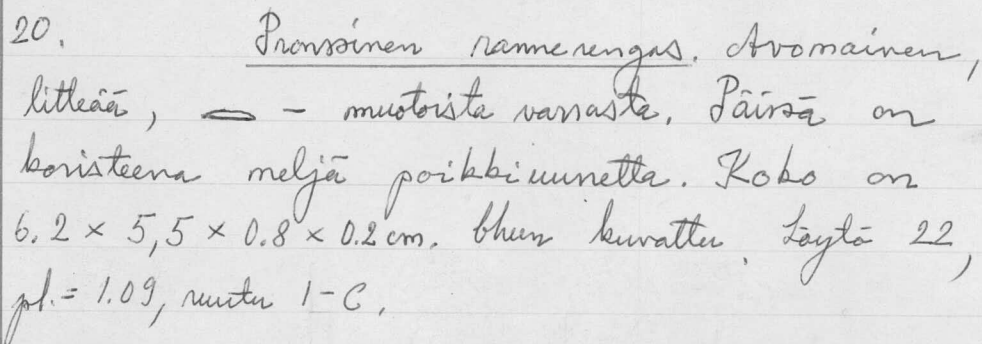 20. Pronssinen rannerengas. Avonainen,
litteää, – muotoista varrasta. Päissä on
koristeena neljä poikkiuurretta. Koko on
6.2 × 5,5 × 0.8 × 0.2 cm. kuvattu. Löytö 22,
pl. = 1.09, ruutu 1-C.